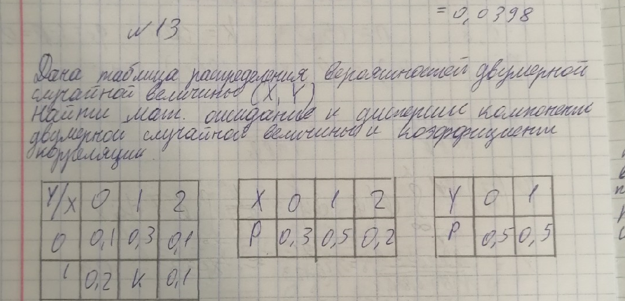 = 0,0398
№13
Дана таблица распределения вероятностей двумерной
случайной величины (X, Y)
Найти мат. ожидание и дисперсии компонент
двумерной случайной величины и коэффициент
корреляции.
Y/X 0 1 2
0 0,1 0,3 0,1
1 0,2 к 0,1
X 0 1 2
P 0,3 0,5 0,2
Y 0 1
P 0,5 0,5